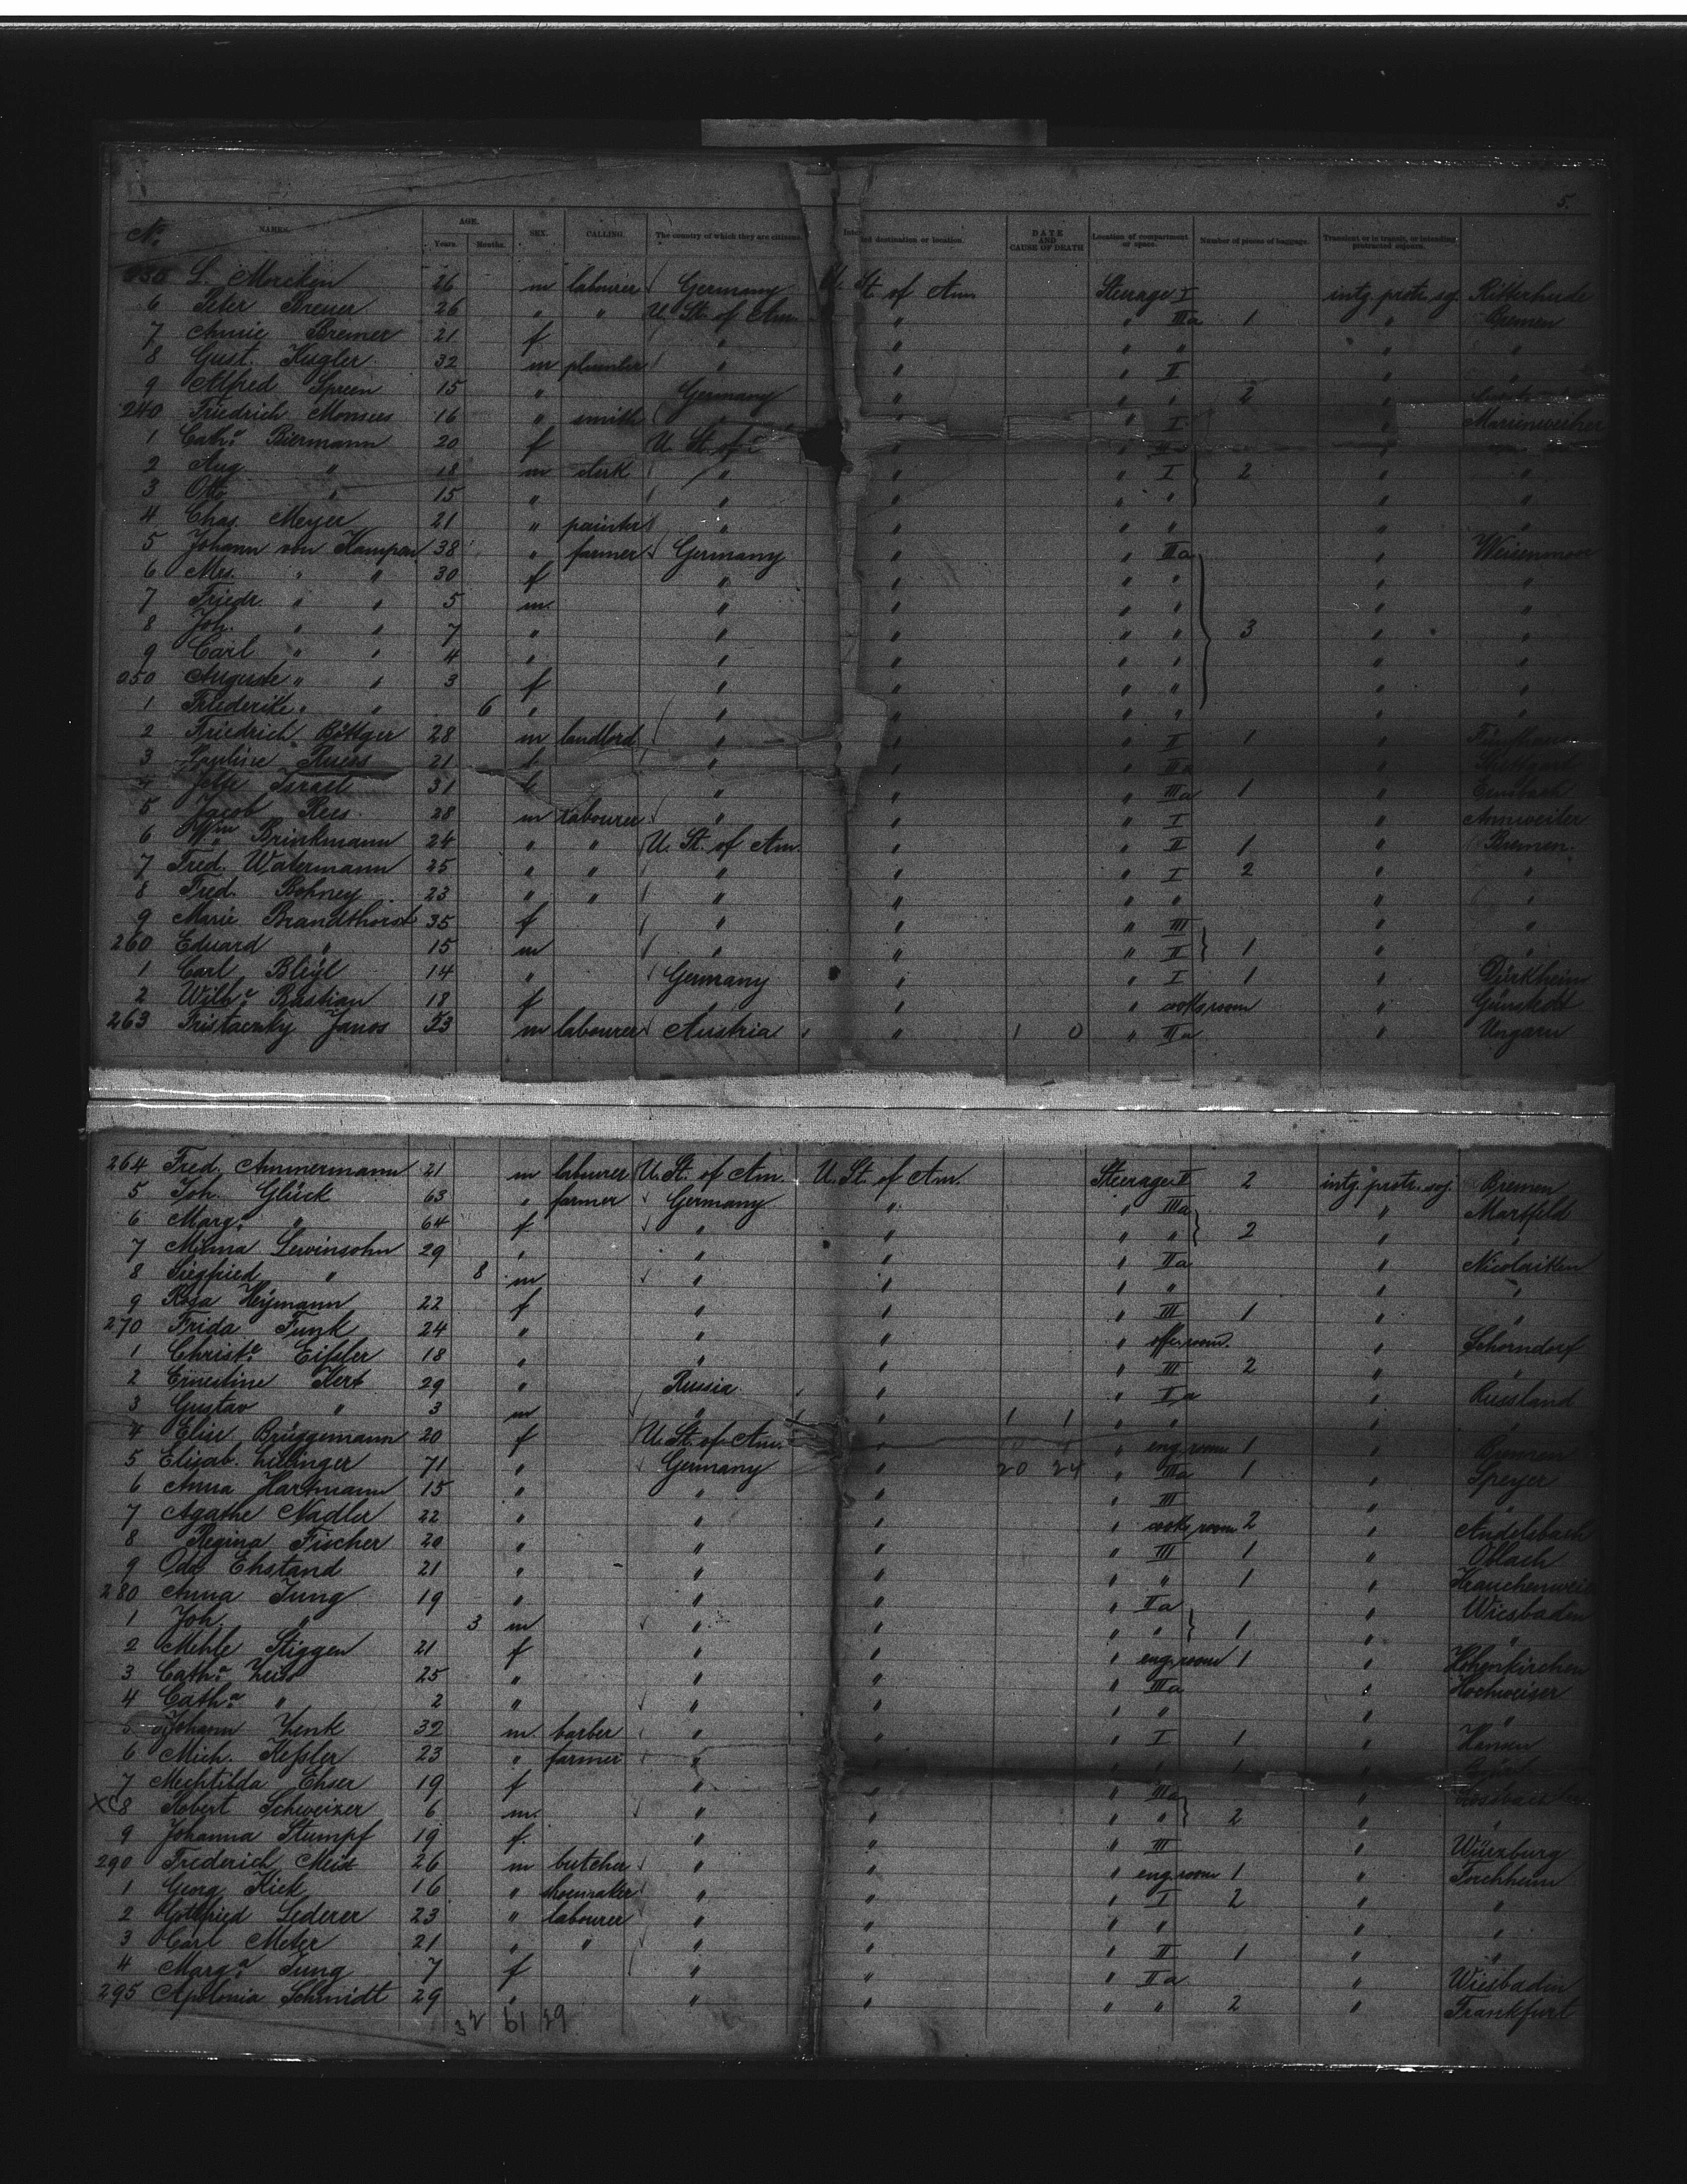 5.
No. NAMES. AGE. Years. Months. SEX. CALLING. The country of which they are citizens. Intended destination or location. DATE AND CAUSE OF DEATH Location of compartment or space. Number of pieces of baggage. Transient or in transit, or intending protracted sojourn.
235 L. Morcken 26 m labourer Germany U. St. of Am. Steerage I intg. protr. soj. Ritterhude
6 Peter Breuer 26 " " U. St. of Am. " " IIIa 1 " Bremen
7 Annie Bremer 21 f " " " " " "
8 Gust. Kugler 32 m plumber " " " II " "
9 Alfred Spreen 15 " Germany " " " 2 "
240 Friedrich Monsees 16 " smith " " " I "
1 Cath.a Biermann 20 f U. St. of " " "
2 Aug. " 18 m clerk " " " I 2 " "
3 Otto " 15 " " " " " " "
4 Chas. Meyer 21 " painter " " " " " "
5 Johann von Kampen 38 " farmer Germany " " IIa "
6 Mrs. " " 30 f " " " " " "
7 Friedr. " " 5 m. " " " " " "
8 Joh. " " 7 " " " " " 3 " "
9 Carl " " 4 " " " " " " "
250 Auguste " " 3 f " " " " " "
1 Friederike " " 6 " " " " " " "
2 Friedrich Böttger 28 m landlord " " " II 1 "
3 Pauline Ruess 21 f " " " IIIa "
4 Jette Israel 31 f " " " IIIa 1 "
5 Jacob Rees 28 m labourer " " " I " Annweiler
6 Wm. Brinkmann 24 " " U. St. of Am. " " II 1 " Bremen.
7 Fred. Watermann 25 " " " " " I 2 " "
8 Fred. Bohney 23 " " " " " " " "
9 Marie Brandthorst 35 f " " " III " "
260 Eduard " 15 m " " " II 1 " "
1 Carl Bleyl 14 " Germany " " I 1 " Dürkheim
2 Wilh.e Bastian 18 f " cooks room "
263 Tristaczky Janos 53 m labourer Austria " 1 0 " IIa " Ungarn
264 Fred. Ammermann 21 m labourer U. St. of Am. U. St. of Am. Steerage II 2 intg. protr. soj. Bremen
5 Joh. Glück 63 " farmer Germany " " IIIa " Martfeld
6 Marg.a " 64 f " " " " 2 " "
7 Minna Lewinsohn 29 " " " " IIa " Nicolaiken
8 Siegfried " 8 m " " " " " "
9 Rosa Heymann 22 f " " " III 1 " "
270 Frida Funk 24 " " " " off. room. " Schorndorf
1 Christ.e Eißler 18 " " " " III 2 " "
2 Ernestine Kert 29 " Russia " " IIa " Russland
3 Gustav " 3 m " " 1 1 " " " "
4 Elise Brüggemann 20 f U. St. of Am. " " eng. room 1 " Bremen
5 Elisab. Lillinger 71 " Germany " 20 24 " IIIa 1 " Speyer
6 Anna Hartmann 15 " " " " III " "
7 Agathe Nadler 22 " " " " cooks room 2 " Andelsbach
8 Regina Fischer 20 " " " " III 1 " Oblach
9 Oda Ehstand 21 " " " " " 1 "
280 Anna Jung 19 " " " " IIa " Wiesbaden
1 Joh. " 3 m " " " " 1 " "
2 Mehle Stiggen 21 f " " " eng. room 1 " Hohenkirchen
3 Cath.a Zeiss 25 " " " " IIIa " Hochweiser
4 Cath.a " 2 " " " " " " "
5 Johann Zenk 32 m. barber " " " I 1 "
6 Mich. Keßler 23 " farmer " " " " 1 "
7 Mechtilda Ehser 19 f " " " IIIa "
X 8 Robert Schweizer 6 m. " " " " 2 " "
9 Johanna Stumpf 19 f. " " " III " Würzburg
290 Frederich Meix 26 m butcher " " " eng. room 1 " Forchheim
1 Georg Kick 16 " shoemaker " " " I 2 " "
2 Gottfried Lederer 23 " labourer " " " " " "
3 Carl Meter 21 " " " " " II 1 " "
4 Marg.a Jung 7 f " " " IIa " Wiesbaden
295 Apolonia Schmidt 29 " " " " " 2 " Frankfurt
32 61 29